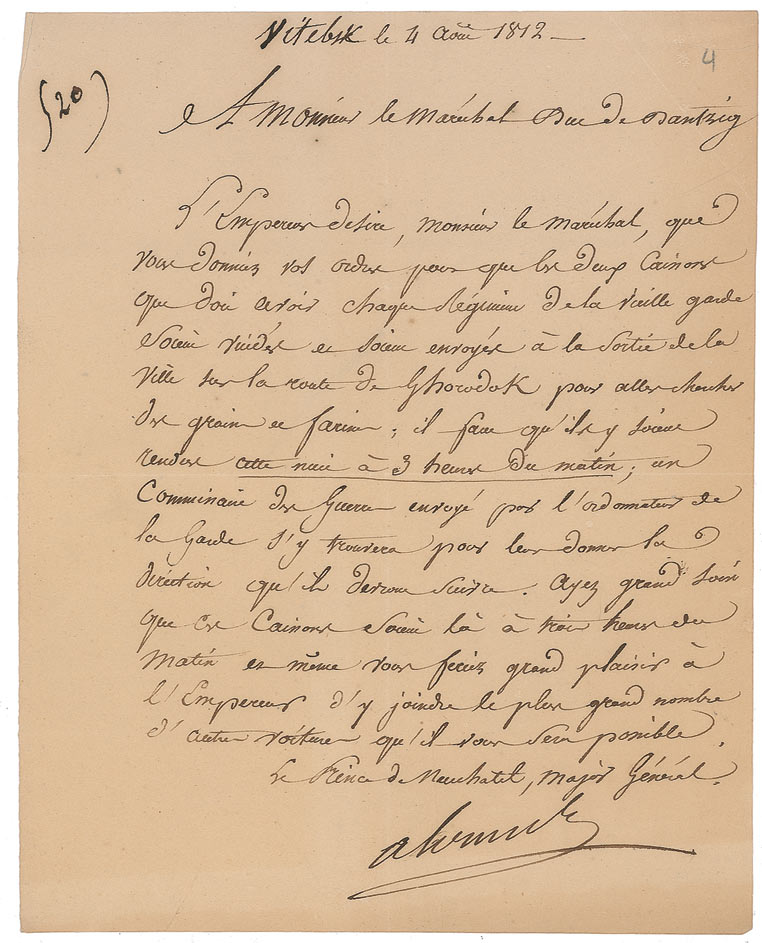 Vitebsk le 4 août 1812
4
(20)
A Monsieur le Maréchal Duc de Dantzig
L'Empereur desire, Monsieur le Maréchal, que
vous donniez vos ordres pour que les deux Caissons
que doit avoir chaque Régiment de la vieille garde
soient vuidés et soient envoyés à la sortie de la
Ville sur la route de Ghorodok pour aller chercher
des grains et farine ; il faut qu'ils y soient
rendus cette nuit à 3 heures du matin ; un
Commissaire des Guerres envoyé par l'ordonnateur de
la Garde s'y trouvera pour leur donner la
direction qu'ils devront suivre. Ayez grand soin
que ces Caissons soient là à trois heures du
matin et même vous feriez grand plaisir à
l'Empereur d'y joindre le plus grand nombre
d'autres voitures qu'il vous sera possible.
Le Prince de Neuchatel, Major Général.